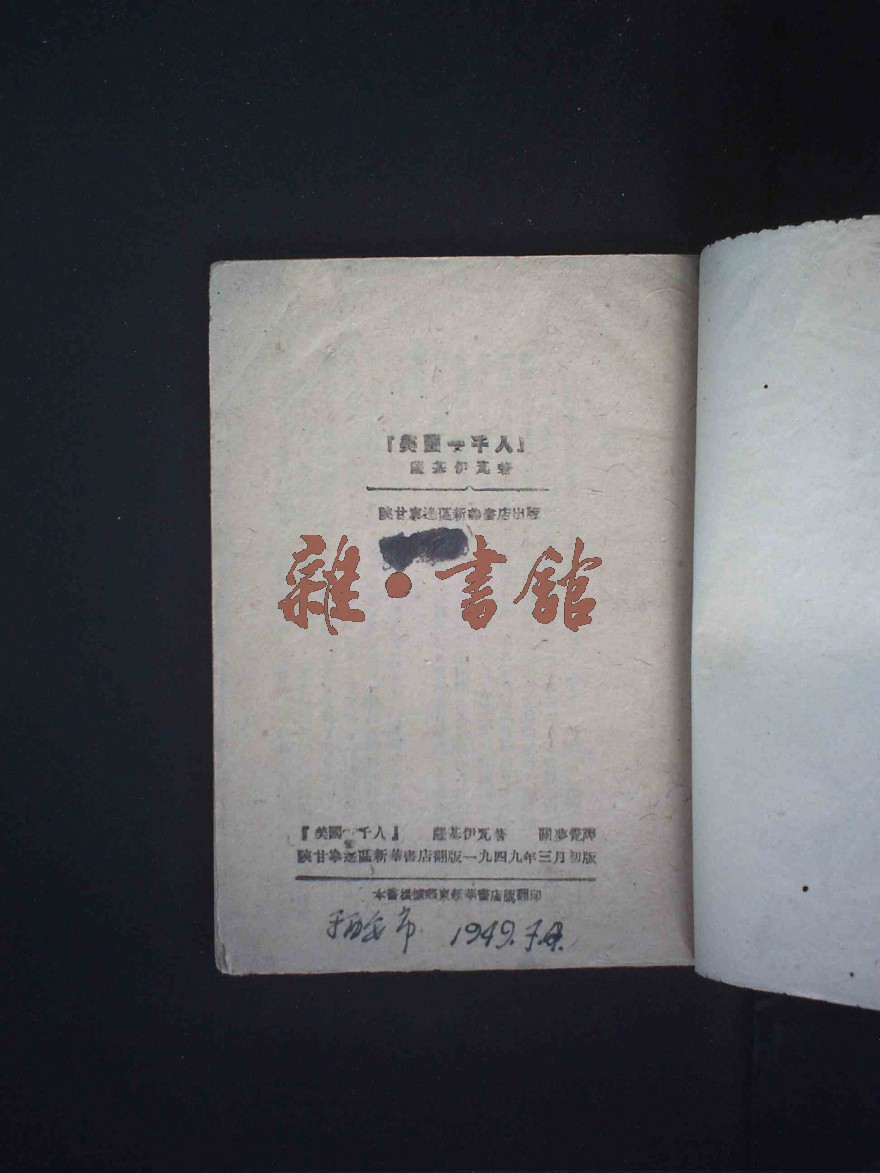 『美國一千人』
薩基伊瓦著
陝甘寧邊區新華書店出版
雜·書館
『美國一千人』 薩基伊瓦著 關夢覺譯
陝甘寧邊區新華書店翻版一九四九年三月初版
本書根據東新華書店版翻印
于西安市 1949.7.